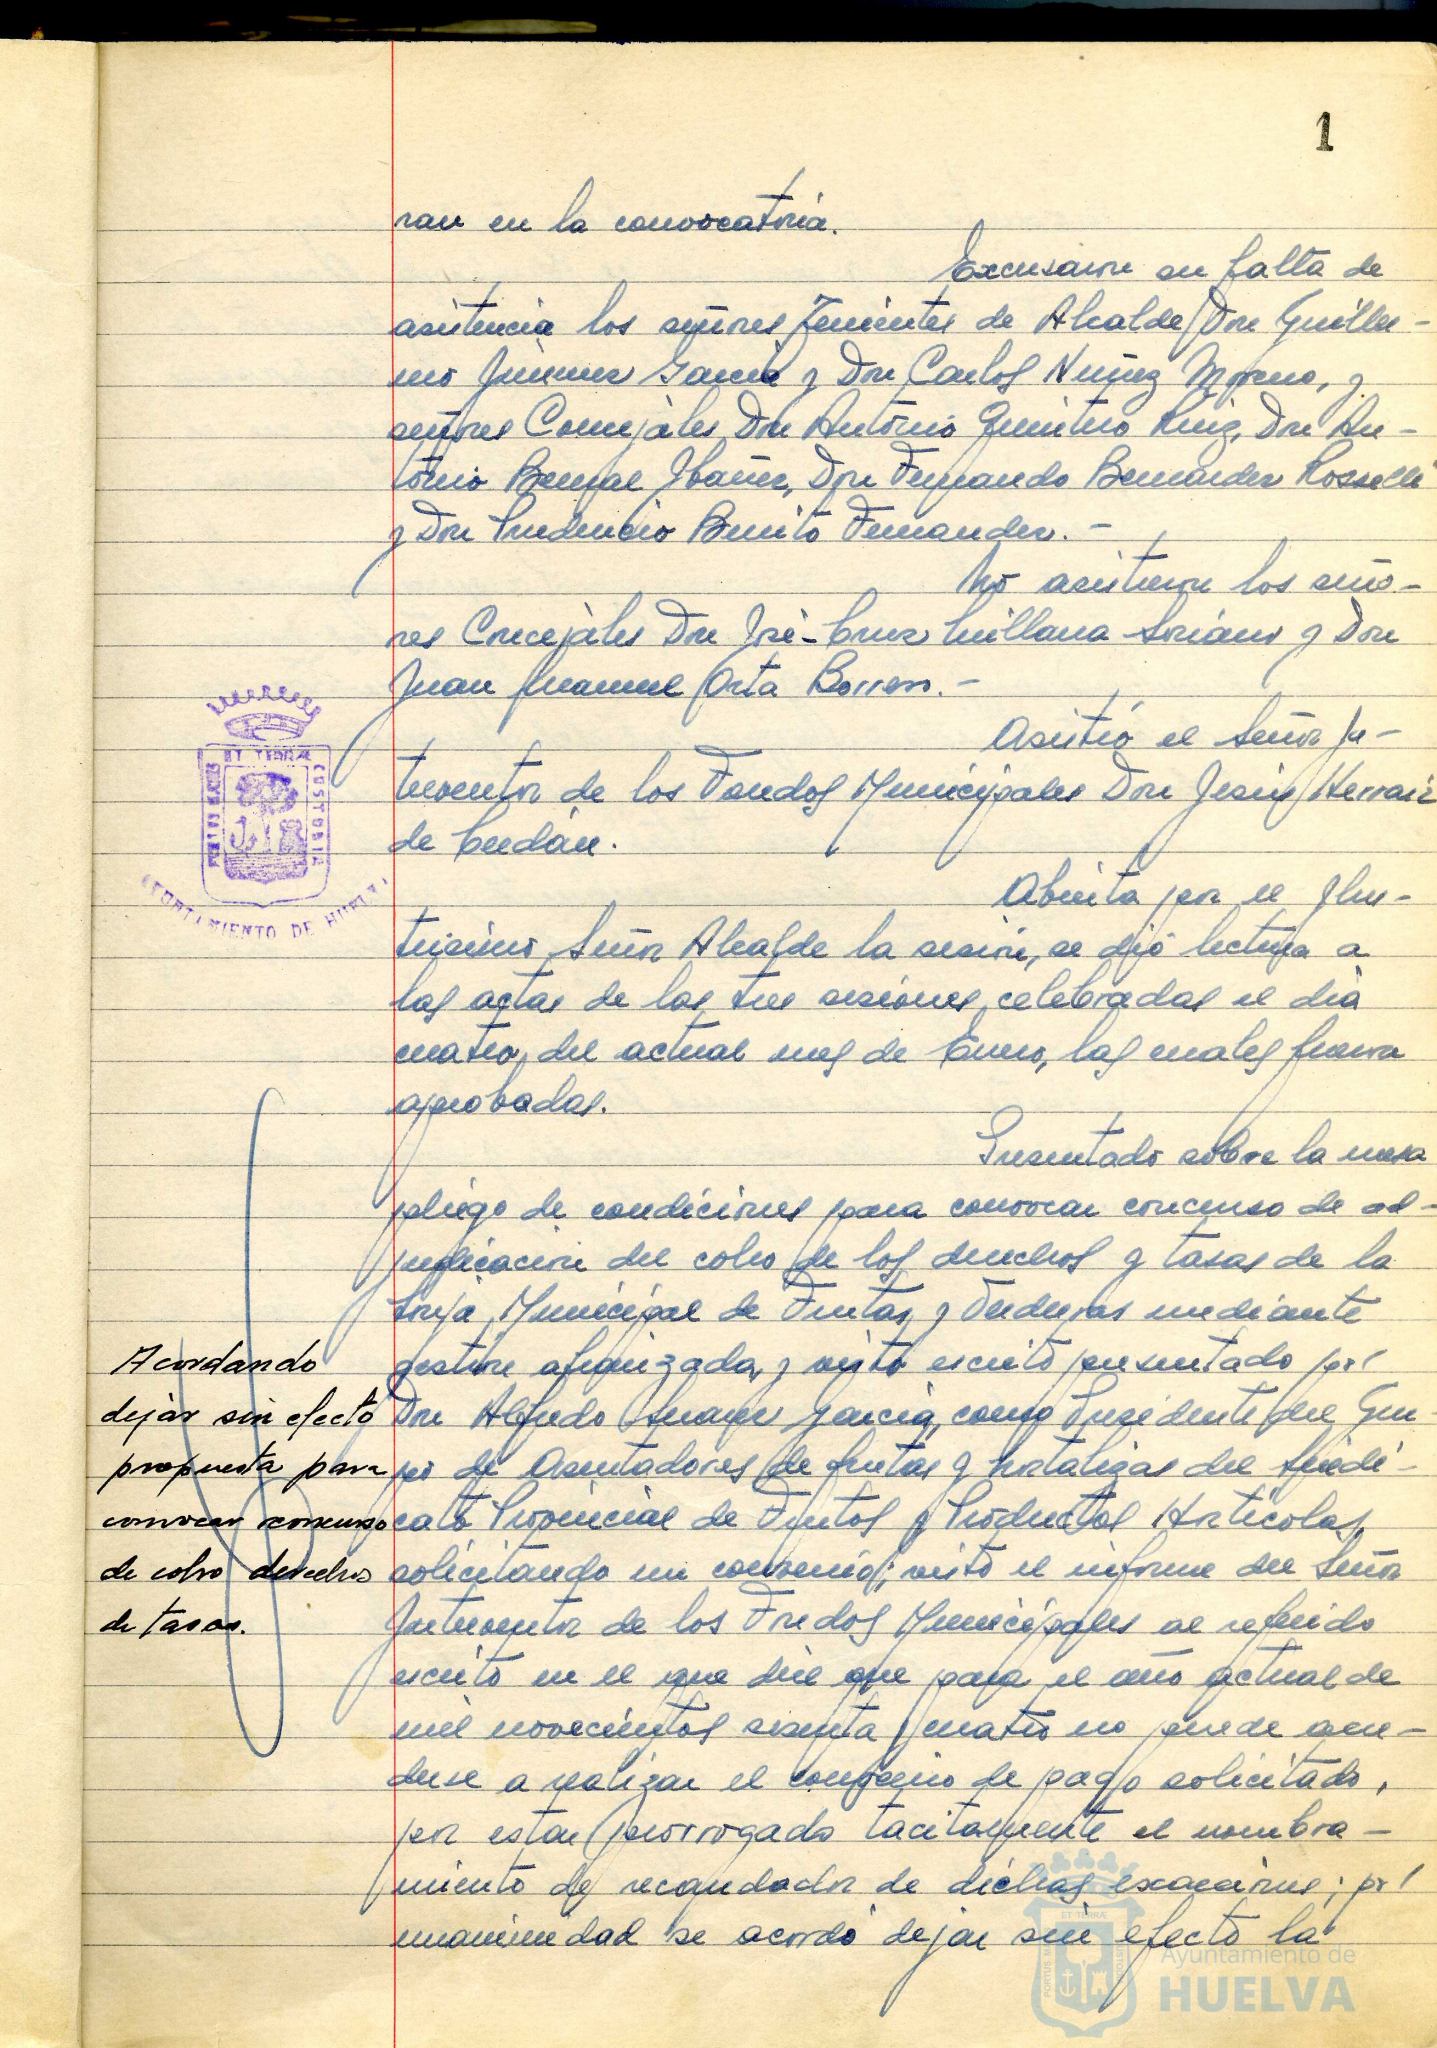 1
ran en la convocatoria.
Excusaron su falta de
asistencia los señores Tenientes de Alcalde Don Guiller-
mo Jimenez Garcia y Don Carlos Nuñez Moreno, y
señores Concejales Don Antonio Quintero Ruiz, Don An-
tonio Bernal Ibañez, Don Fernando Bernardez Rosselli
y Don Prudencio Benito Fernandez.-
No asistieron los seño-
res Concejales Don José-Cruz Millana Soriano y Don
Juan Manuel Orta Borrero.-
Asistió el Señor In-
terventor de los Fondos Municipales Don Jesús Herraiz
de
Abierta por el Ilus-
trisimo Señor Alcalde la sesión, se dió lectura a
las actas de las tres sesiones celebradas el dia
cuatro del actual mes de Enero, las cuales fueron
aprobadas.
Presentado sobre la mesa
pliego de condiciones para convocar concurso de ad-
judicacion del cobro de los derechos y tasas de la
Lonja Municipal de Frutas y Verduras mediante
gestion afianzada, y visto escrito presentado por
Don Alfredo García, como Presidente del Gru-
po de Asentadores de frutas y hortalizas del Sindi-
cato Provincial de Frutos y Productos Horticolas,
solicitando un convenio; visto el informe del Señor
Interventor de los Fondos Municipales al referido
escrito en el que dice que para el año actual de
mil novecientos sesenta y cuatro no puede acce-
derse a realizar el convenio de pago solicitado,
por estar prorrogado tacitamente el nombra-
miento de recaudador de dichas exacciones; por
unanimidad se acordó dejar sin efecto la
Acordando
dejar sin efecto
propuesta para
convocar concurso
de cobro derechos
de tasas.
PORTUS MARIS ET TERRAE CUSTODIA
AYUNTAMIENTO DE HUELVA
PORTUS MARIS ET TERRAE CUSTODIA
Ayuntamiento de
HUELVA